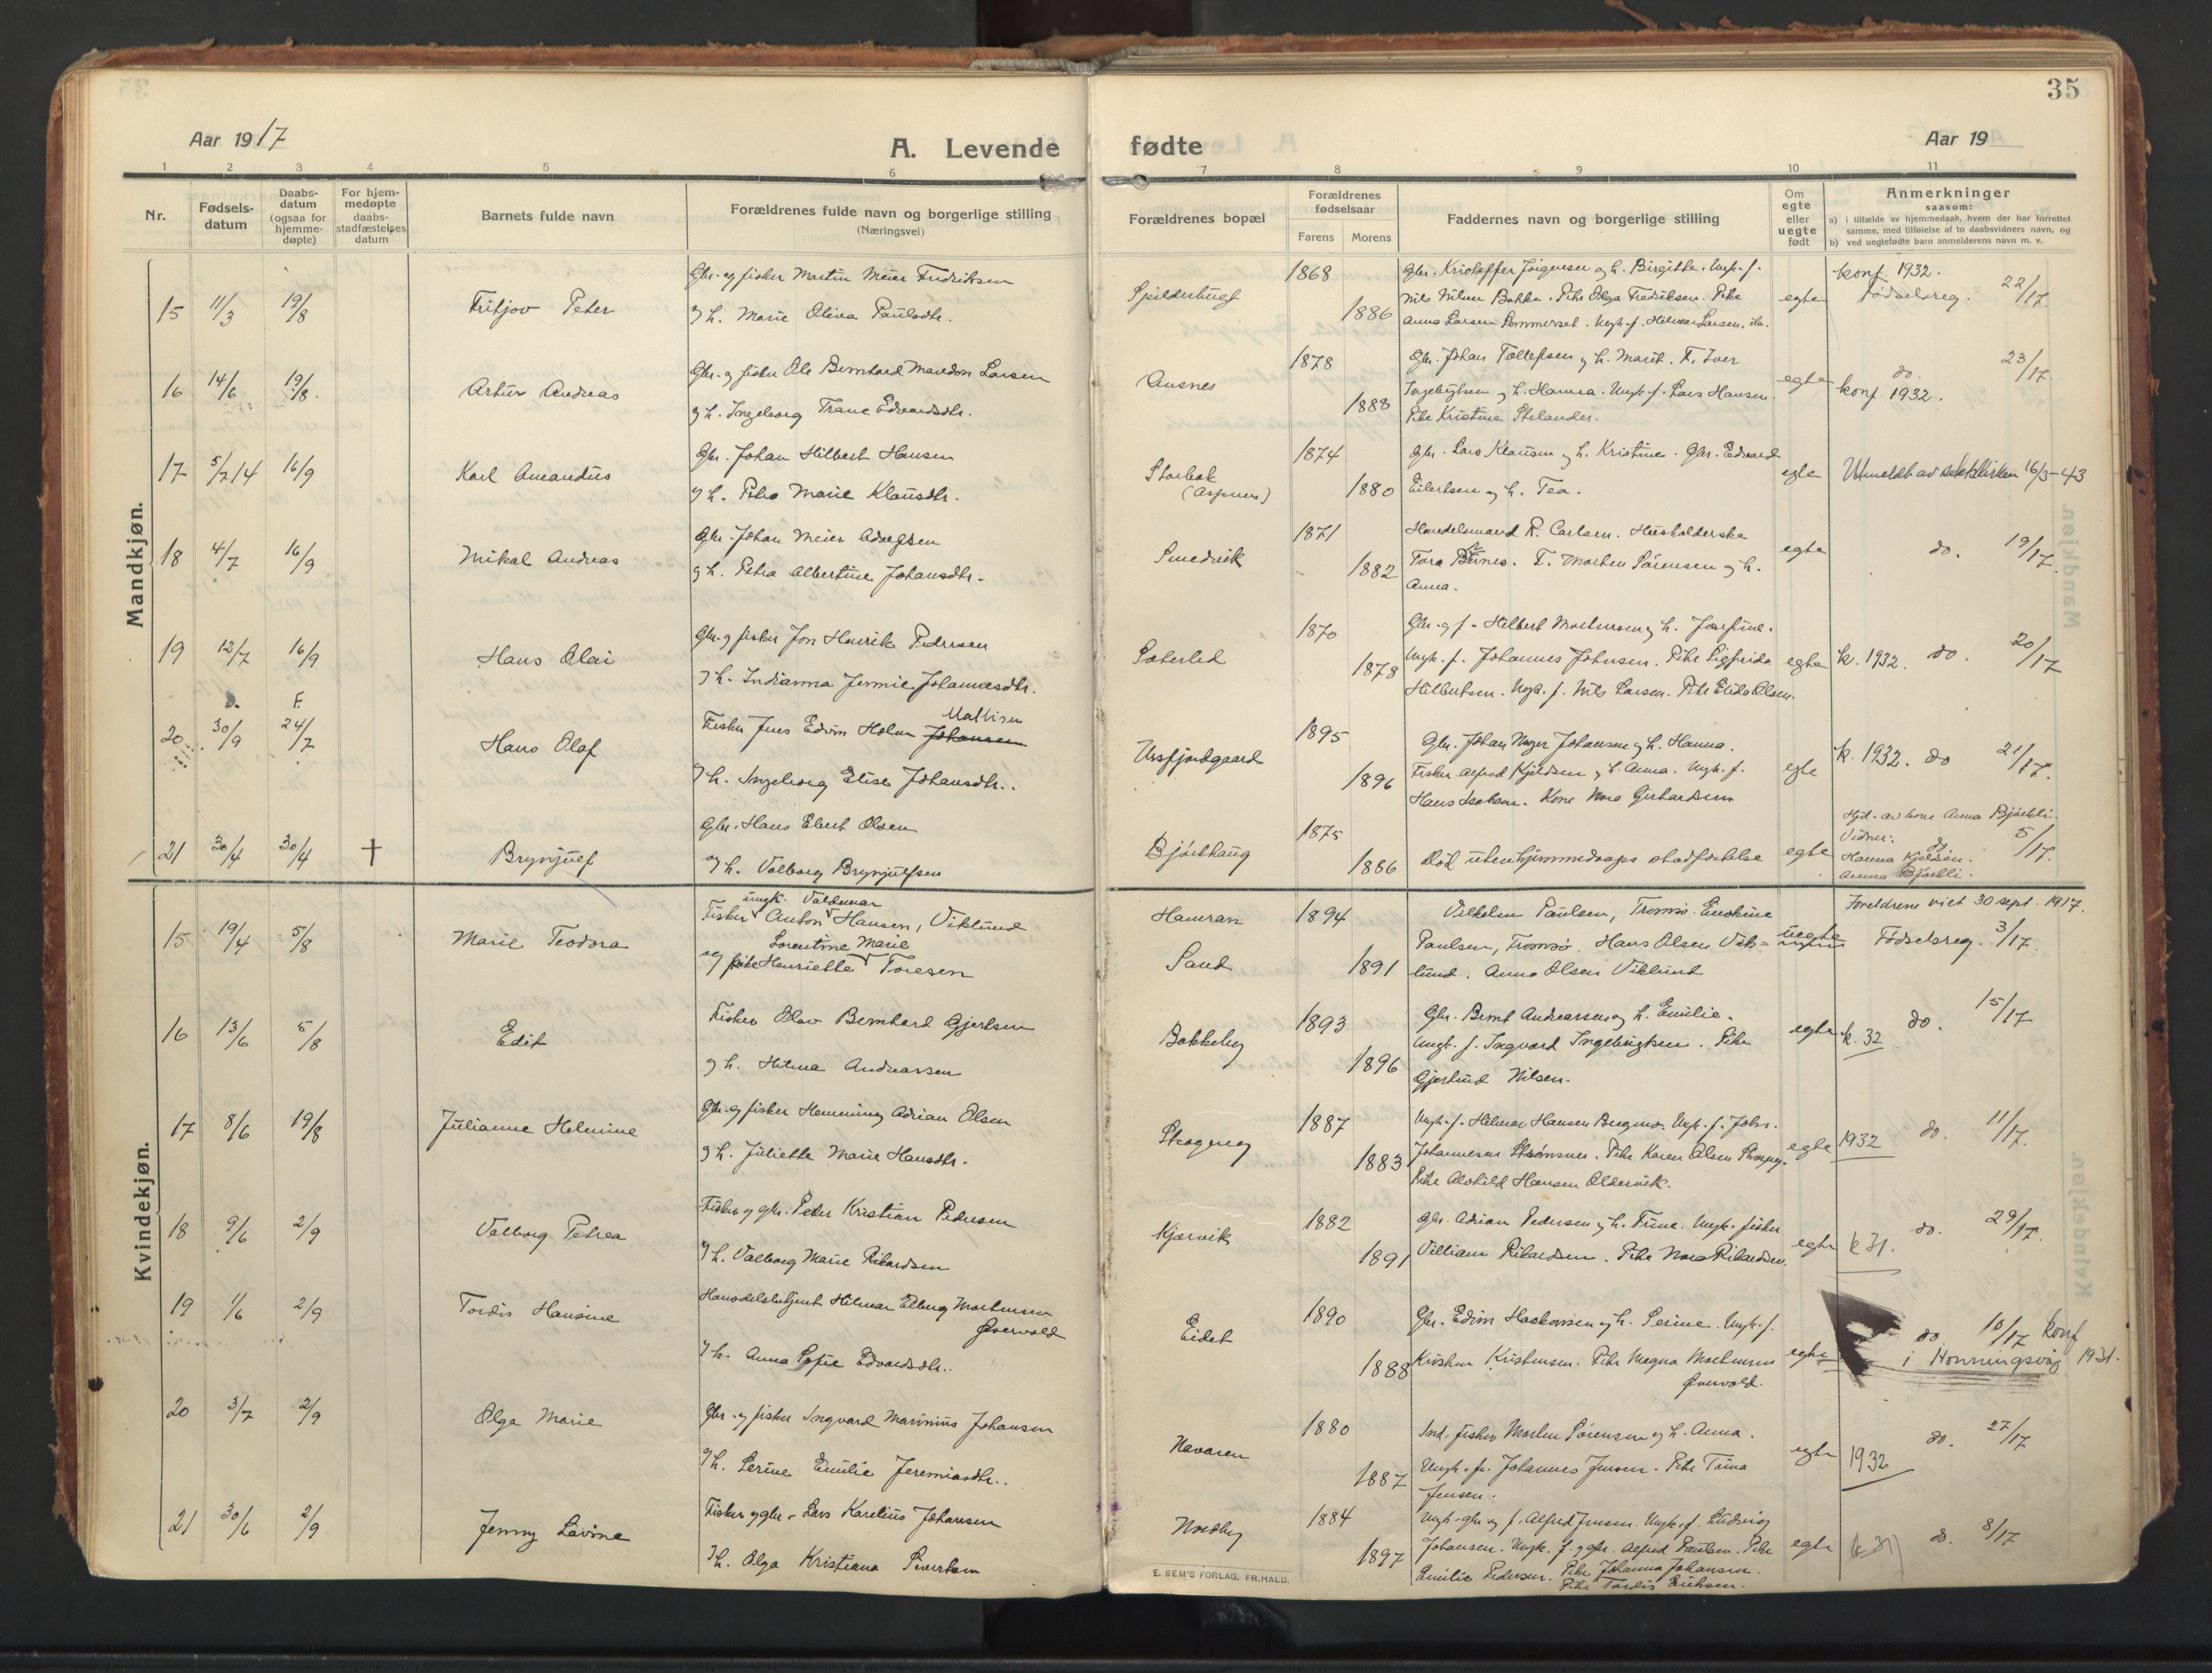 35
Aar 1917
A. Levende fødte
Aar 19
1 2 3 4 5 6 7 8 9 10 11
Nr.
Fødsels-
datum
Daabs-
datum
(ogsaa for
hjemme-
døpte)
For hjem-
medøpte
daabs-
stadfæstelses
datum
Barnets fulde navn
Forældrenes fulde navn og borgerlige stilling
(Næringsvei)
Forældrenes bopæl
Forældrenes
fødselsaar
Farens Morens
Faddernes navn og borgerlige stilling
Om
egte
eller
uegte
født
Anmerkninger
saasom:
a) i tilfælde av hjemmedaab, hvem der har forrettet
samme, med tilføielse af to daabsvidners navn, og
b) ved uegtefødte barn anmelderens navn m. v.
Mandkjøn.
15 11/3 19/8 Fritjov Peter
Gbr. og fisker Martin Meier Fredriksen
og h. Marie Oliva Paulsdtr.
Spilderbugt 1868 1886
Gbr. Kristoffer Jørgensen og h. Birgitte. Ungk. f.
Nils Nilsen Bakke. Pike Olga Fredriksen. Pike
Anna Larsen Sommerset. Ungk. f. Hilmar Larsen, ib.
egte
konf. 1932.
Fødselsreg. 22/17.
16 14/6 19/8 Artur Andreas
Gbr. og fisker Ole Bernhard Mandon Larsen
og h. Ingeborg Trane Edvardsdtr.
Ausnes 1878 1888
Gbr. Johan Tollefsen og h. Marit. F. Iver
Ingebrigtsen og h. Hanna. Ungk. f. Lars Hansen.
Pike Kristine Stelander.
egte
do. 23/17.
konf. 1932.
17 5/7 14 16/9 Karl Amandus
Gbr. Johan Hilbert Hansen
og h. Petra Marie Klausdtr.
Storbak
(Aspenes)
1874 1880
Gbr. Lars Klausen og h. Kristine. Gbr. Edvard
Eilertsen og h. Tea.
egte
Utmeldt av statskirken 16/3-43
18 4/7 16/9 Mikal Andreas
Gbr. Johan Meier Adolfsen
og h. Petra Albertine Johansdtr.
Smedvik 1871 1882
Handelsmand R. Carlsen. Husholderske
Tora Bernes. F. Morten Sørensen og h.
Anna.
egte
do. 19/17.
19 12/7 16/9 Hans Olai
Gbr. og fisker Jon Henrik Pedersen
og h. Indianna Jermie Johannesdtr.
Sæterlid 1870 1878
Gbr. og f. Hilbert Mortensen og h. Josefine.
Ungk. f. Johannes Johnsen. Pike Sigfrida
Hilbertsen. Ungk. f. Nils Larsen. Pike Elida Olsen.
egte
k. 1932. do. 20/17
D. F.
20 30/9 24/7 Hans Olaf
Mathisen
Fisker Jens Edvin Holm Johansen
og h. Ingeborg Elise Johansdtr.
Ursfjordgaard 1895 1896
Gbr. Johan Meyer Johansen og h. Hanna.
Fisker Alfred Kjeldsen og h. Anna. Ungk. f.
Hans Isaksen. Kone Nora Gerhardsen
egte
k. 1932. do 21/17.
21 30/4 30/4 † Brynjulf
Gbr. Hans Ebert Olsen
og h. Valborg Brynjulfsen
Bjørkhaug 1875 1886
Død uten hjemmedaaps stadfæstelse
egte
Hjd. av kone Anna Bjørkli.
Vidner: do 5/17.
Hanna Kjeldsen.
Anna Bjørkli.
Kvindekjøn.
15 19/4 5/8 Marie Teodora
ungk. Valdemar
Fisker Anton Hansen, Viklund
Lorentine Marie
og pike Henriette Toresen
Hamran
Sand
1894 1891
Vilhelm Paulsen, Tromsø. Enokine
Paulsen, Tromsø. Hans Olsen Vik-
lund. Anna Olsen Viklund
uegte
Foreldrene viet 30 sept. 1917.
Fødselsreg. 3/17.
16 13/6 5/8 Edit
Fisker Olav Bernhard Gjertsen
og h. Hilma Andreassen
Bakkeby 1893 1896
Gbr. Bernt Andreassen og h. Emilie.
Ungk. f. Ingvard Ingebrigtsen. Pike
Gjertrud Nilsen.
egte
k. 32 do. 15/17
17 8/6 19/8 Julianne Helmine
Gbr. og fisker Henning Adrian Olsen
og h. Juliette Marie Hansdtr.
Skogeng 1887 1883
Ungk. f. Hilmar Hansen Bregnes. Ungk. f. Johs.
Johannesen Strømsnes. Pike Karen Olsen Skogeng.
Pike Alvhild Hansen Oldervik.
egte
1932 do. 11/17.
18 9/6 2/9 Valborg Petrea
Fisker og gbr. Peder Kristian Pedersen
og h. Valborg Marie Rikardsen
Kjærvik 1882 1891
Gbr. Adrian Pedersen og h. Trine. Ungk. fisker
Villiam Rikardsen. Pike Nora Rikardsen.
egte
k 31. do. 29/17.
19 1/6 2/9 Tordis Hansine
Handelsbetjent Hilmar Elberg Mortensen
Øvervold
og h. Anna Sofie Edvardsdtr.
Eidet 1890 1888
Gbr. Edvin Haakonsen og h. Serine. Ungk. f.
Kristen Kristensen. Pike Magna Mortensen
Øvervold.
egte
do. 10/17 konf
i Honningsvåg 1931.
20 3/7 2/9 Olga Marie
Gbr. og fisker Ingvard Marinius Johansen
og h. Serine Emilie Jeremiasdtr.
Navaren 1880 1887
Ind. fisker Morten Sørensen og h. Anna.
Ungk. f. Johannes Jensen. Pike Trina
Jensen.
egte
1932 do. 27/17
21 30/6 2/9 Jenny Lovise
Fisker og gbr. Lars Karelius Johansen
og h. Olga Kristiana Sivertsen
Nordby 1884 1897
Ungk. gbr. og f. Alfred Jensen. Ungk. f. Ludvig
Johansen. Ungk. f. og gbr. Alfred Paulsen. Pike
Emilie Pedersen. Pike Johanna Johansen.
Pike Tordis Eriksen.
egte
(k 31) do. 8/17
E. SEM'S FORLAG, FR.HALD.